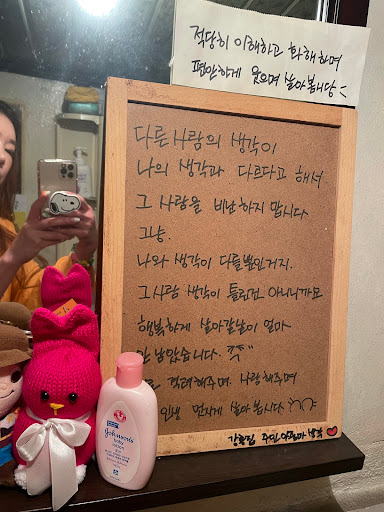 적당히 이해하고 화해하며
편안하게 웃으며 살아봅시당
다른사람의 생각이
나의 생각과 다르다고 해서
그 사람을 비난하지 맙시다
그냥.
나와 생각이 다를뿐인거지.
그사람 생각이 틀린건 아니니까요
행복하게 살아갈날이 얼마
안 남았습니다.
격려해주며. 사랑해주며
인생 멋지게 살아봅시다
주인
Johnson's
baby